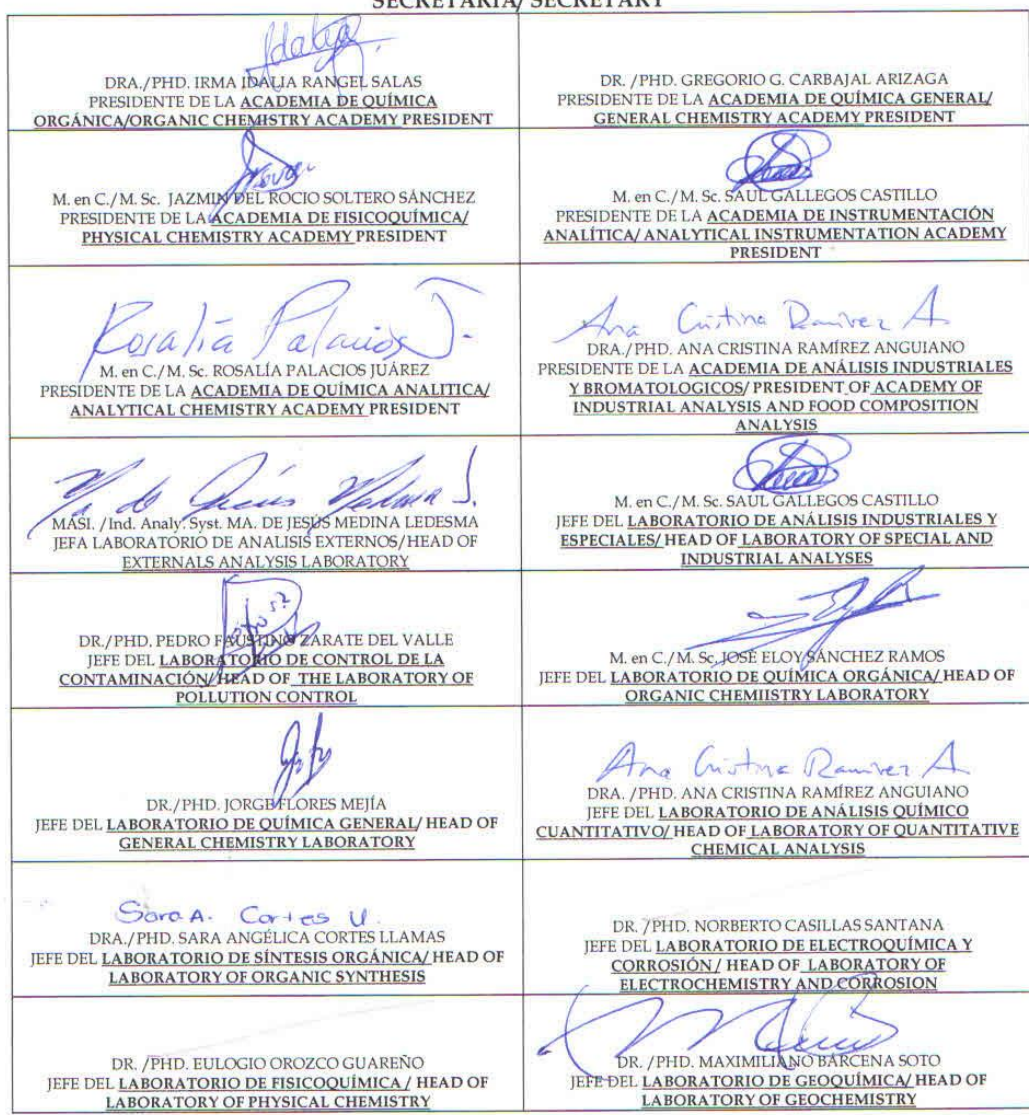 SECRETARIA/ SECRETARY
Idalia
DRA./PHD. IRMA IDALIA RANGEL SALAS
PRESIDENTE DE LA ACADEMIA DE QUÍMICA
ORGÁNICA/ORGANIC CHEMISTRY ACADEMY PRESIDENT
DR. /PHD. GREGORIO G. CARBAJAL ARIZAGA
PRESIDENTE DE LA ACADEMIA DE QUÍMICA GENERAL/
GENERAL CHEMISTRY ACADEMY PRESIDENT
M. en C./M. Sc. JAZMIN DEL ROCIO SOLTERO SÁNCHEZ
PRESIDENTE DE LA ACADEMIA DE FISICOQUÍMICA/
PHYSICAL CHEMISTRY ACADEMY PRESIDENT
M. en C./M. Sc. SAUL GALLEGOS CASTILLO
PRESIDENTE DE LA ACADEMIA DE INSTRUMENTACIÓN
ANALÍTICA/ ANALYTICAL INSTRUMENTATION ACADEMY
PRESIDENT
Rosalía Palacios J.
M. en C./M. Sc. ROSALÍA PALACIOS JUÁREZ
PRESIDENTE DE LA ACADEMIA DE QUÍMICA ANALITICA/
ANALYTICAL CHEMISTRY ACADEMY PRESIDENT
Ana Cristina Ramírez A.
DRA./PHD. ANA CRISTINA RAMÍREZ ANGUIANO
PRESIDENTE DE LA ACADEMIA DE ANÁLISIS INDUSTRIALES
Y BROMATOLOGICOS/ PRESIDENT OF ACADEMY OF
INDUSTRIAL ANALYSIS AND FOOD COMPOSITION
ANALYSIS
Ma de Jesús Medina
MASI. /Ind. Analy. Syst. MA. DE JESÚS MEDINA LEDESMA
JEFA LABORATORIO DE ANALISIS EXTERNOS/HEAD OF
EXTERNALS ANALYSIS LABORATORY
M. en C./M. Sc. SAUL GALLEGOS CASTILLO
JEFE DEL LABORATORIO DE ANÁLISIS INDUSTRIALES Y
ESPECIALES/ HEAD OF LABORATORY OF SPECIAL AND
INDUSTRIAL ANALYSES
DR./PHD. PEDRO FAUSTINO ZARATE DEL VALLE
JEFE DEL LABORATORIO DE CONTROL DE LA
CONTAMINACIÓN/HEAD OF THE LABORATORY OF
POLLUTION CONTROL
M. en C./M. Sc. JOSÉ ELOY SÁNCHEZ RAMOS
JEFE DEL LABORATORIO DE QUÍMICA ORGÁNICA/ HEAD OF
ORGANIC CHEMIISTRY LABORATORY
DR./PHD. JORGE FLORES MEJÍA
JEFE DEL LABORATORIO DE QUÍMICA GENERAL/ HEAD OF
GENERAL CHEMISTRY LABORATORY
Ana Cristina Ramírez A.
DRA. /PHD. ANA CRISTINA RAMÍREZ ANGUIANO
JEFE DEL LABORATORIO DE ANÁLISIS QUÍMICO
CUANTITATIVO/ HEAD OF LABORATORY OF QUANTITATIVE
CHEMICAL ANALYSIS
Sara A. Cortes Ll.
DRA./PHD. SARA ANGÉLICA CORTES LLAMAS
JEFE DEL LABORATORIO DE SÍNTESIS ORGÁNICA/ HEAD OF
LABORATORY OF ORGANIC SYNTHESIS
DR. /PHD. NORBERTO CASILLAS SANTANA
JEFE DEL LABORATORIO DE ELECTROQUÍMICA Y
CORROSIÓN / HEAD OF LABORATORY OF
ELECTROCHEMISTRY AND CORROSION
DR. /PHD. EULOGIO OROZCO GUAREÑO
JEFE DEL LABORATORIO DE FISICOQUÍMICA / HEAD OF
LABORATORY OF PHYSICAL CHEMISTRY
DR. /PHD. MAXIMILIANO BARCENA SOTO
JEFE DEL LABORATORIO DE GEOQUÍMICA/ HEAD OF
LABORATORY OF GEOCHEMISTRY